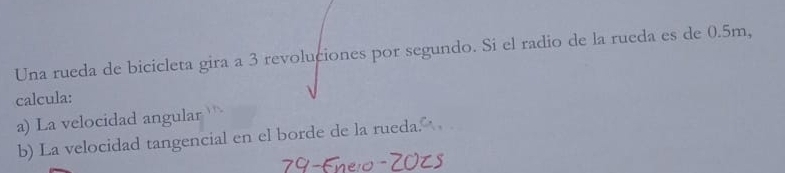 Una rueda de bicicleta gira a 3 revoluciones por segundo. Si el radio de la rueda es de 0.5m,
calcula:
a) La velocidad angular
b) La velocidad tangencial en el borde de la rueda.
29-Enero-2025